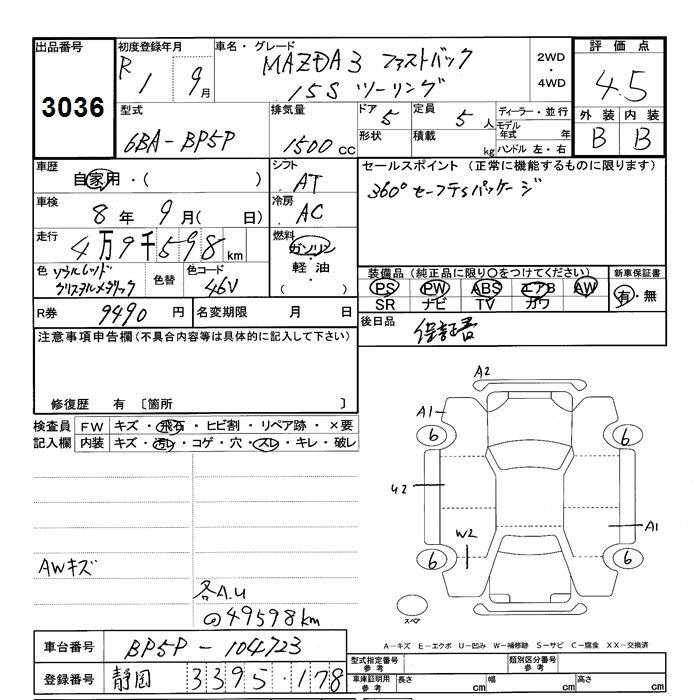 出品番号
3036
初度登録年月
R1 9月
車名・グレード
MAZDA3 ファストバック
15S ツーリング
2WD
・
4WD
評価点
4.5
外装 内装
B B
型式
6BA-BP5P
排気量
1500 cc
ドア 5
形状
定員 5人
積載 kg
ディーラー・並行
モデル年式 年
ハンドル 左・右
車歴
自家用・( )
シフト
AT
車検
8年 9月( 日)
冷房
AC
走行
4万9千598km
燃料
ガソリン
・
軽油
・
( )
色 ソウルレッド
クリスタルメタリック
色替
色コード
46V
セールスポイント (正常に機能するものに限ります)
360°セーフティパッケージ
装備品(純正品に限り○をつけてください)
PS PW ABS エアB AW
SR ナビ TV カワ
新車保証書
有・無
R券 9490円
名変期限 月 日
後日品
保証書
注意事項申告欄(不具合内容等は具体的に記入して下さい)
修復歴 有 〔箇所 〕
検査員
記入欄
FW キズ・飛石・ヒビ割・リペア跡・×要
内装 キズ・汚レ・コゲ・穴・スレ・キレ・破レ
AWキズ
各A.U
49598km
A2
A1
6
6
U2
A1
W2
6
6
スペア
A-キズ E-エクボ U-凹み W-補修跡 S-サビ C-腐食 XX-交換済
車台番号 BP5P-104723
登録番号 静岡 3395・178
型式指定番号
参考
類別区分番号
参考
車庫証明用
参考
長さ cm
幅 cm
高さ cm